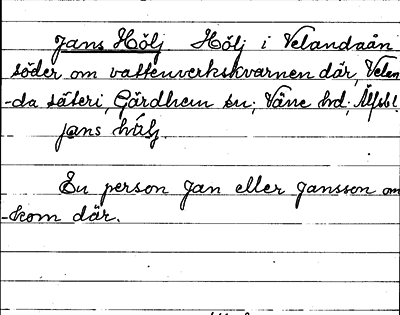 Jans Hölj Hölj i Velandaån
söder om vattenverkskvarnen där, Velan
-da säteri, Gärdhem sn; Väne hd; Älfsbl.
jans hölj
En person Jan eller Jansson om
-kom där.